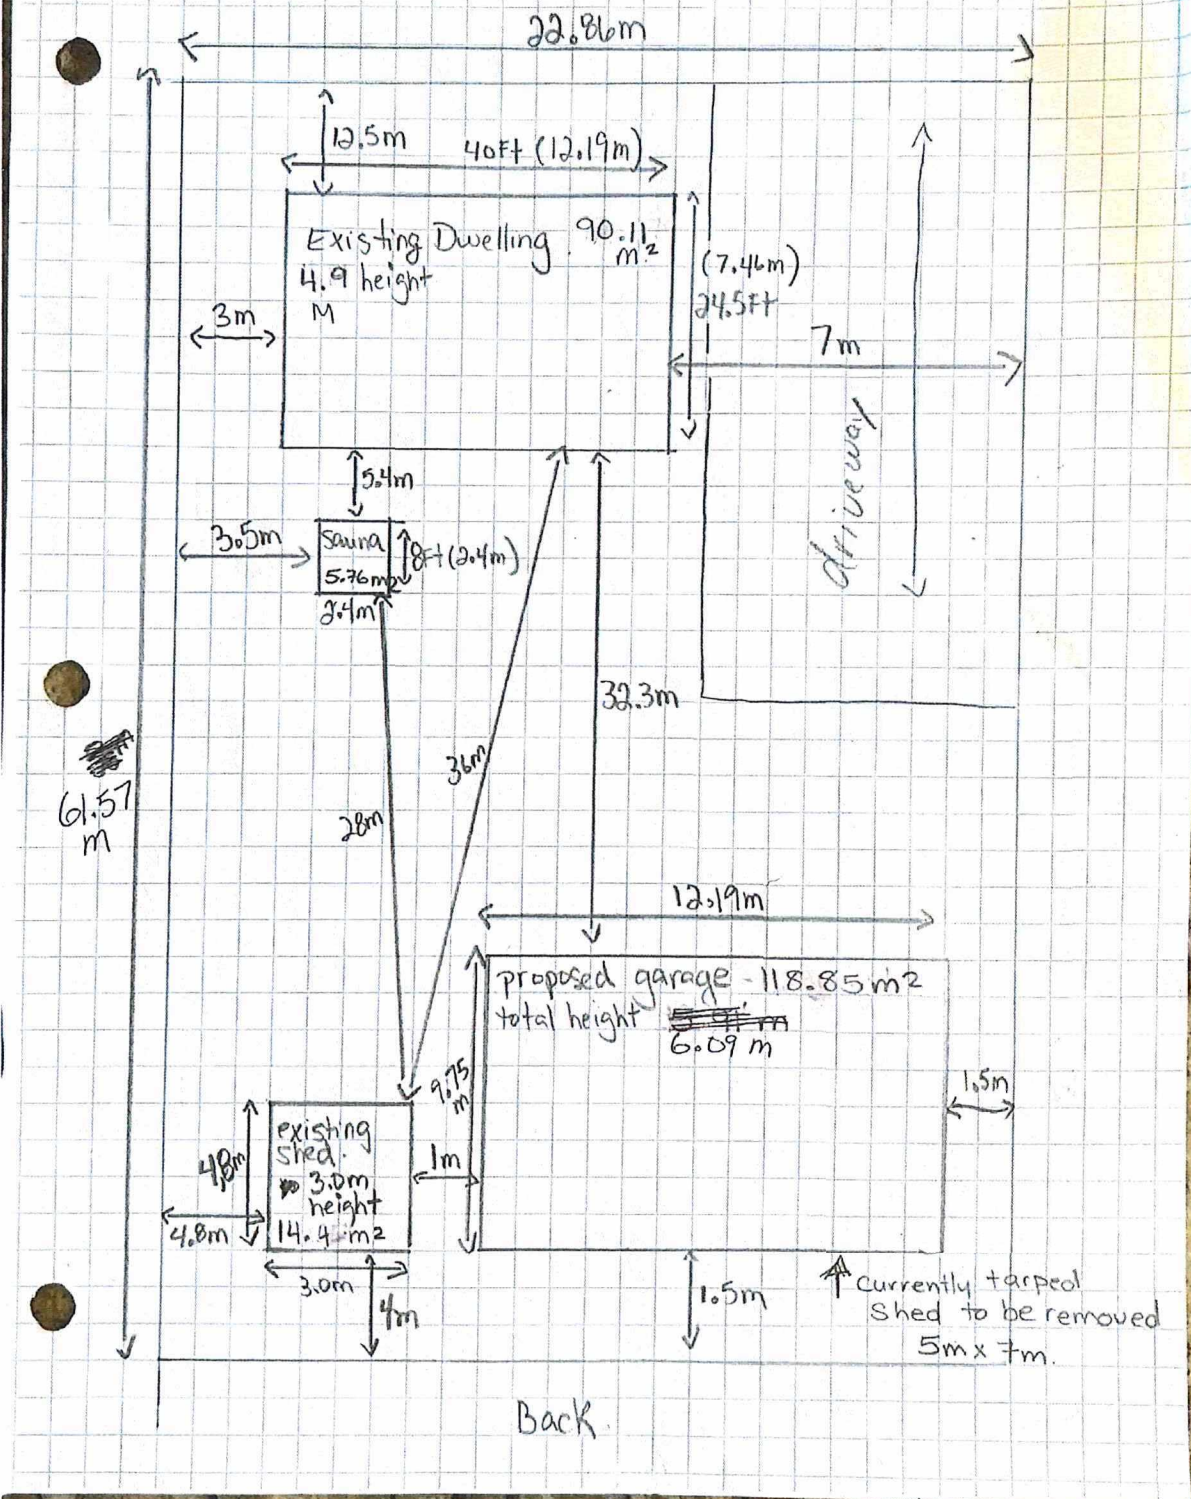 22.86m
12.5m
40Ft (12.19m)
Existing Dwelling 90.11
m²
4.9 height
M
(7.46m)
24.5Ft
3m
7m
driveway
5.4m
3.5m
Sauna
8Ft (2.4m)
5.76m2
2.4m
32.3m
36m
28m
61.57
m
12.19m
proposed garage - 118.85m2
total height
6.09 m
9.75
m
1.5m
existing
shed.
3.0m
height
14.4 m2
4.8m
1m
4.8m
3.0m
4m
1.5m
currently tarped
shed to be removed
5m x 7m.
Back